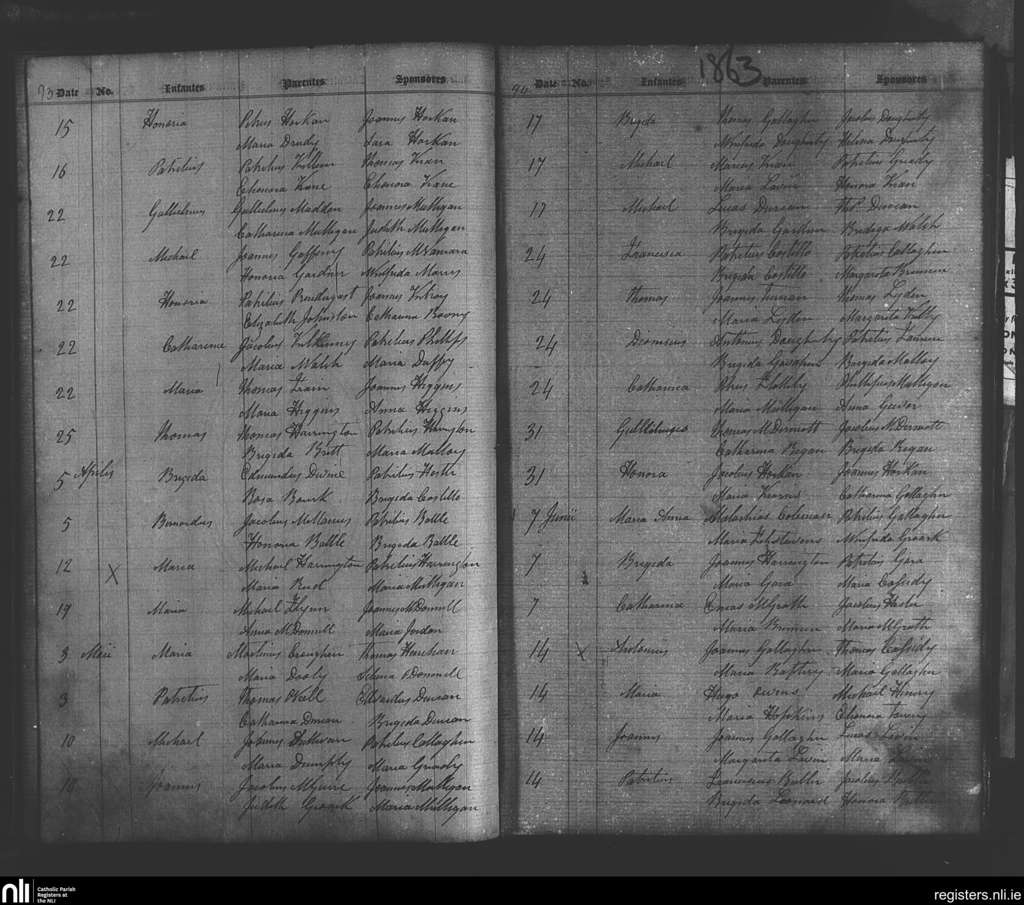 1863
93 Date No. Infantes Parentes Sponsores
15 Honoria Petrus Horkan Joannes Horkan
Maria Drudy Sara Horkan
16 Patritius Patritius Killeen Thomas Kean
Elenora Kane Elenora Kane
22 Gulielmus Gulielmus Madden Joannes Mulligan
Catharina Mulligan Judith Mulligan
22 Michael Joannes Gaffeny Patritius McNamara
Honoria Gardner Winifrida Morris
22 Honoria Patritius Prendergast Joannes
Elizabeth Johnston Catharina
22 Catharine Jacobus Kilkenny Patritius Phillips
Maria Walsh Maria Duffy
22 Maria Thomas Joannes Higgins
Maria Higgins Anna Higgins
25 Thomas Thomas Harrington Patritius Harrington
Brigida Britt Maria Mallory
5 Aprilis Brigida Edmundus Patritius
Rosa Bourk Brigida Costillo
5 Bernardus Jacobus Patritius Battle
Honoria Battle Brigida Battle
12 X Maria Michael Harrington Patritius Harrington
Maria Reid Maria Mulligan
19 Maria Michael Flynn Joannes McDonnell
Anna McDonnell Maria Jordan
3 Maii Maria Martinus Creaghan Thomas
Maria Dooly O'Donnell
3 Patritius Thomas Edvardus Duncan
Catharina Duncan Brigida Duncan
10 Michael Joannes Sullivan Patritius Callaghan
Maria Dunphy Maria
10 Joannes Jacobus McGuire Joannes Mulligan
Judith Groark Maria Mulligan
94 Date No. Infantes Parentes Sponsores
17 Brigida Thomas Gallagher Jacobus Dougherty
Winifrida Dougherty Helena Dougherty
17 Michael Marcus Kean Patritius Grady
Maria Lavin Honora Kean
17 Michael Lucas Duncan Thos. Duncan
Brigida Gardner Bridiga Walsh
24 Francisca Patritius Costillo Patritius Callaghan
Brigida Costillo Margarita Brennan
24 Thomas Joannes Thomas Lyden
Maria Lyden Margarita
24 Dionisius Antonius Dougherty Patritius
Brigida Brigida Malloy
24 Catharina Petrus Phillipus Mulligan
Maria Mulligan Anna
31 Gulielmus Thomas McDermott Jacobus McDermott
Catharina Regan Brigida Regan
31 Honora Jacobus Horkan Joannes Horkan
Maria Kearns Catharina Gallagher
7 Junii Maria Anna Malachias Coleman Patritius Gallagher
Maria Winifrida Groark
7 Brigida Joannes Harrington Patritius Gara
Maria Gara Maria Cassidy
7 Catharina McGrath Jacobus
Maria Brennan Maria McGrath
14 X Antonius Joannes Gallagher Thomas Cassidy
Maria Maria Gallagher
14 Maria Hugo Owens Michael Henry
Maria Hopkins Elenora
14 Joannes Joannes Gallagher Lucas Lavin
Margarita Lavin Maria Lavin
14 Patritius Franciscus Butler Jacobus
Brigida Leonard Honora
nli
Catholic Parish
Registers at
the NLI
registers.nli.ie